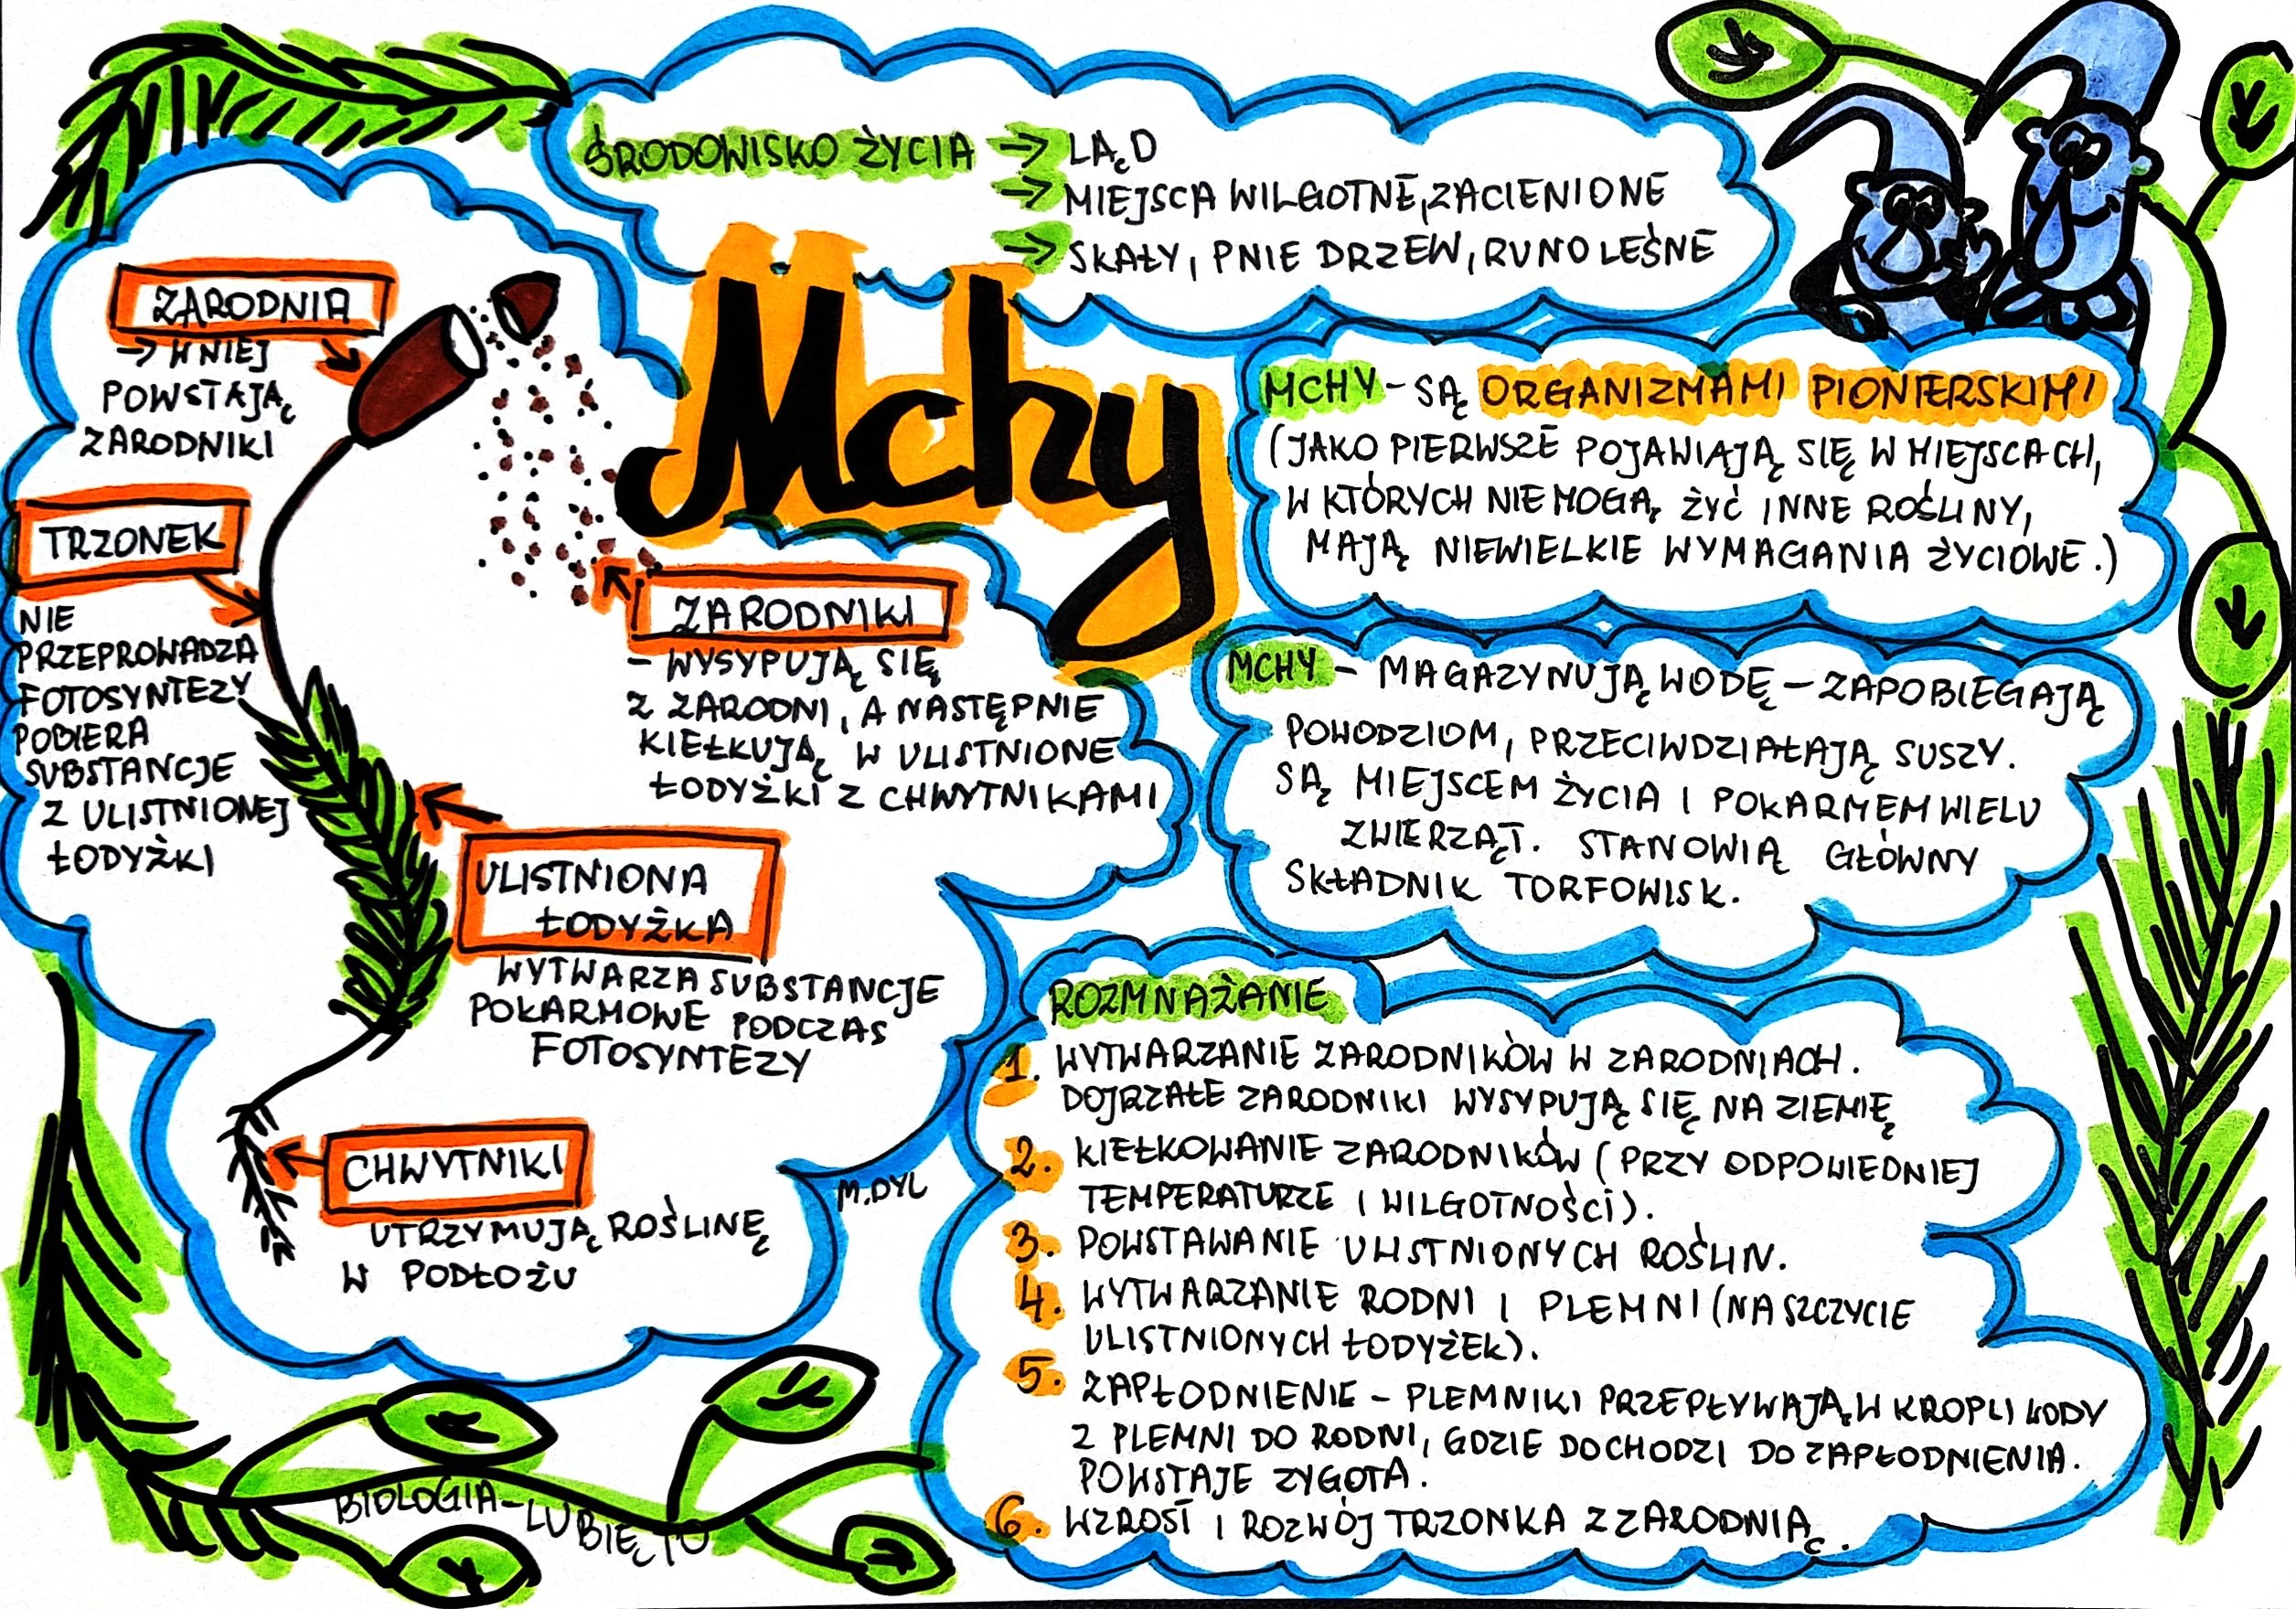 ŚRODOWISKO ŻYCIA → LĄD
→ MIEJSCA WILGOTNE, ZACIENIONE
→ SKAŁY, PNIE DRZEW, RUNO LEŚNE
Mchy
ZARODNIA
→ W NIEJ
POWSTAJĄ
ZARODNIKI
TRZONEK
NIE
PRZEPROWADZA
FOTOSYNTEZY
POBIERA
SUBSTANCJE
Z ULISTNIONEJ
ŁODYŻKI
ZARODNIKI
- WYSYPUJĄ SIĘ
Z ZARODNI, A NASTĘPNIE
KIEŁKUJĄ W ULISTNIONE
ŁODYŻKI Z CHWYTNIKAMI
ULISTNIONA
ŁODYŻKA
WYTWARZA SUBSTANCJE
POKARMOWE PODCZAS
FOTOSYNTEZY
CHWYTNIKI
UTRZYMUJĄ ROŚLINĘ
W PODŁOŻU
M.DYL
BIOLOGIA-LUBIĘ TO
MCHY - SĄ ORGANIZMAMI PIONIERSKIMI
(JAKO PIERWSZE POJAWIAJĄ SIĘ W MIEJSCACH,
W KTÓRYCH NIE MOGĄ ŻYĆ INNE ROŚLINY,
MAJĄ NIEWIELKIE WYMAGANIA ŻYCIOWE.)
MCHY - MAGAZYNUJĄ WODĘ - ZAPOBIEGAJĄ
POWODZIOM, PRZECIWDZIAŁAJĄ SUSZY.
SĄ MIEJSCEM ŻYCIA I POKARMEM WIELU
ZWIERZĄT. STANOWIĄ GŁÓWNY
SKŁADNIK TORFOWISK.
ROZMNAŻANIE
1. WYTWARZANIE ZARODNIKÓW W ZARODNIACH.
DOJRZAŁE ZARODNIKI WYSYPUJĄ SIĘ NA ZIEMIĘ
2. KIEŁKOWANIE ZARODNIKÓW (PRZY ODPOWIEDNIEJ
TEMPERATURZE I WILGOTNOŚCI).
3. POWSTAWANIE ULISTNIONYCH ROŚLIN.
4. WYTWARZANIE RODNI I PLEMNI (NA SZCZYCIE
ULISTNIONYCH ŁODYŻEK).
5. ZAPŁODNIENIE - PLEMNIKI PRZEPŁYWAJĄ W KROPLI WODY
Z PLEMNI DO RODNI, GDZIE DOCHODZI DO ZAPŁODNIENIA.
POWSTAJE ZYGOTA.
6. WZROST I ROZWÓJ TRZONKA Z ZARODNIĄ.